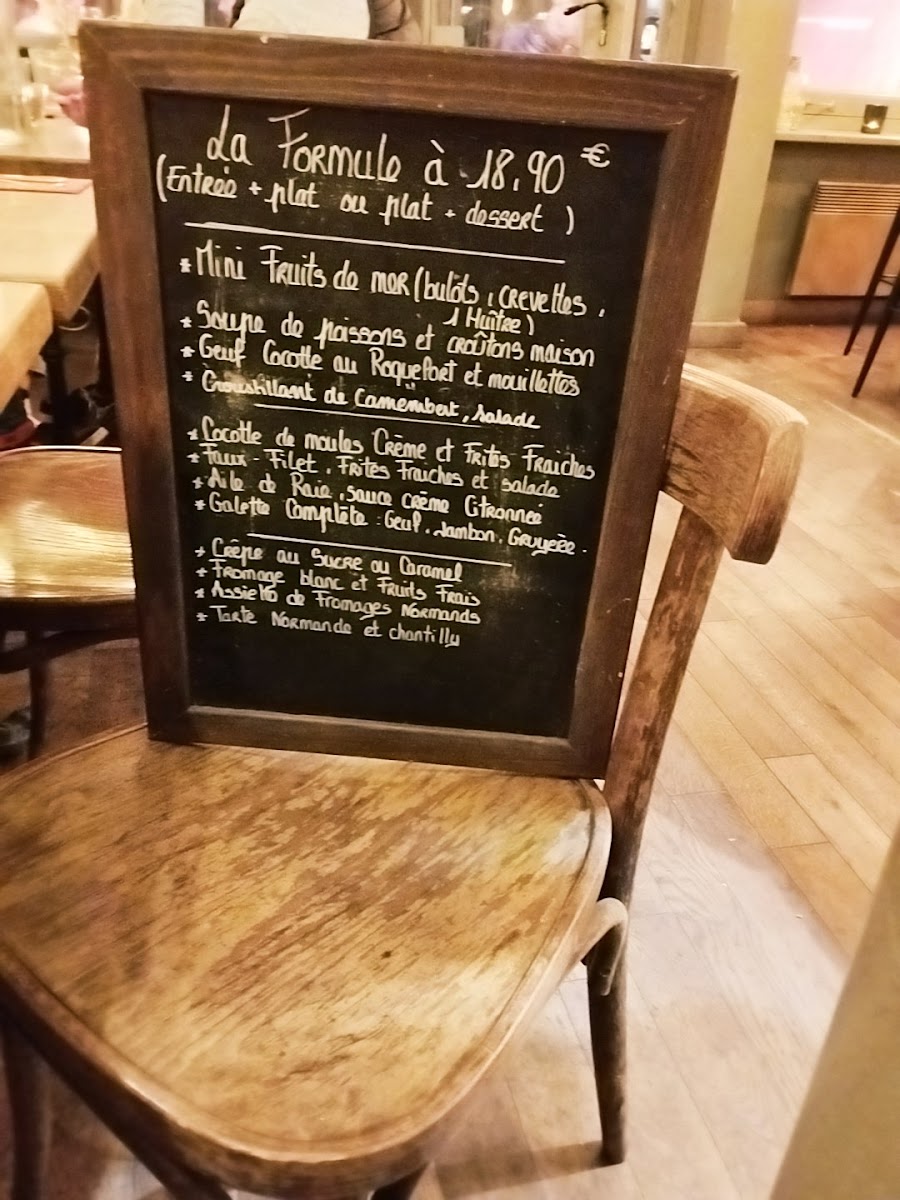 La Formule à 18.90 €
(Entrée + plat ou plat + dessert )
* Mini Fruits de mer (bulots, crevettes,
1 Huître)
* Soupe de poissons et croûtons maison
* Oeuf Cocotte au Roquefort et mouillettes
* Croustillant de Camembert, salade
* Cocotte de moules Crème et Frites Fraiches
* Faux-Filet, Frites Fraiches et salade
* Aile de Raie, sauce crème Citronnée
* Galette Complète : Oeuf, Jambon, Gruyère.
* Crêpe au Sucre ou Caramel
* Fromage blanc et Fruits Frais
* Assiette de Fromages Normands
* Tarte Normande et chantilly